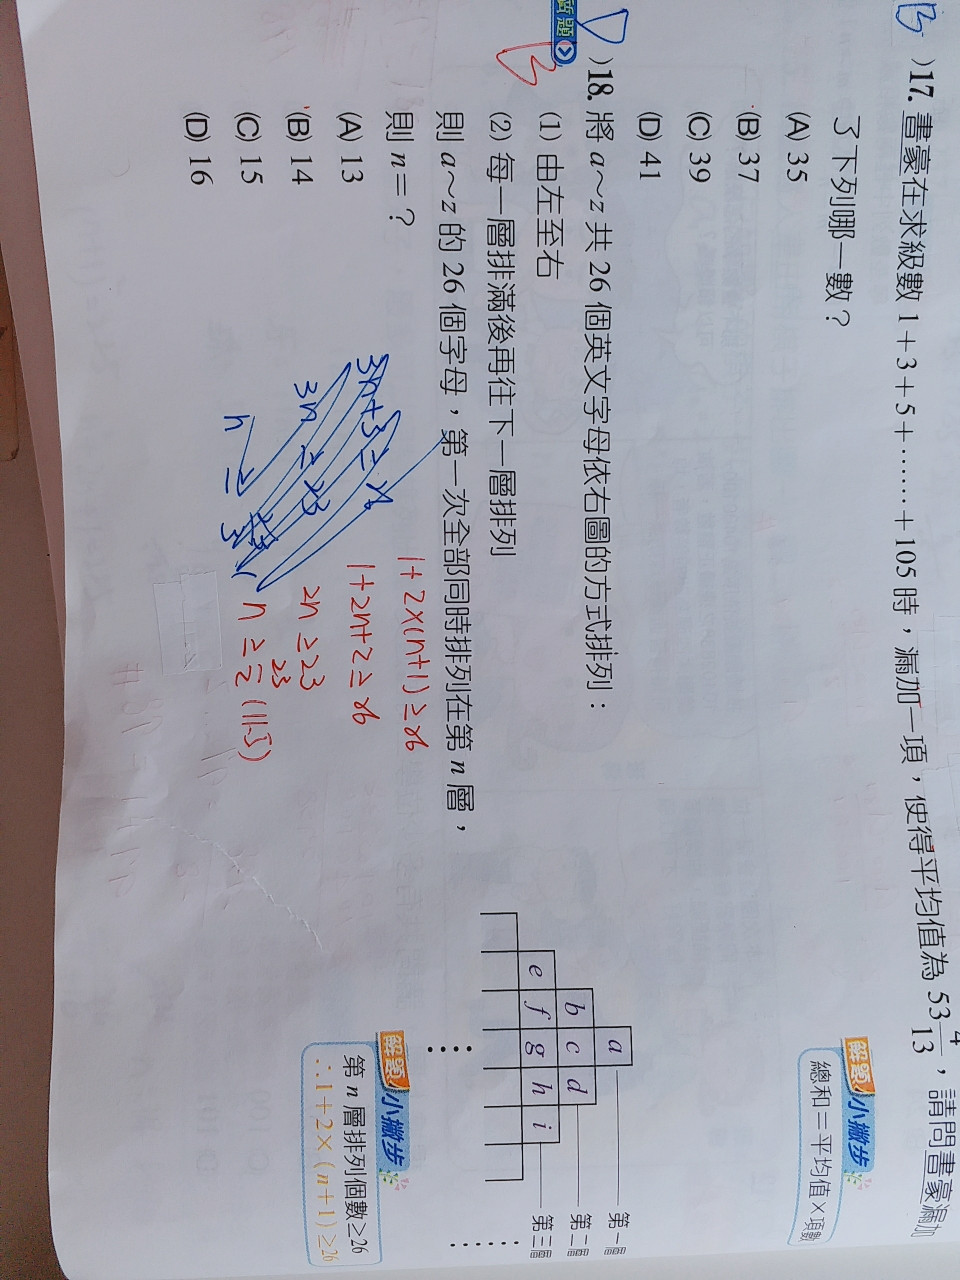 B )17. 書豪在求級數 1＋3＋5＋……＋105 時，漏加一項，使得平均值為 53 4/13，請問書豪漏加
了下列哪一數？
(A) 35
(B) 37
(C) 39
(D) 41
解題小撇步
總和＝平均值×項數
題
D )18. 將 a～z 共 26 個英文字母依右圖的方式排列：
B
(1) 由左至右
(2) 每一層排滿後再往下一層排列
則 a～z 的 26 個字母，第一次全部同時排列在第 n 層，
則 n＝？
(A) 13
(B) 14
(C) 15
(D) 16
3n+3≥26
3n≥23
n≥
1+2×(n+1)≥26
1+2n+2≥26
2n≥23
n≥23/2 (11.5)
a 第一層
b c d 第二層
e f g h i 第三層
解題小撇步
第 n 層排列個數≥26
∴1＋2×(n＋1)≥26